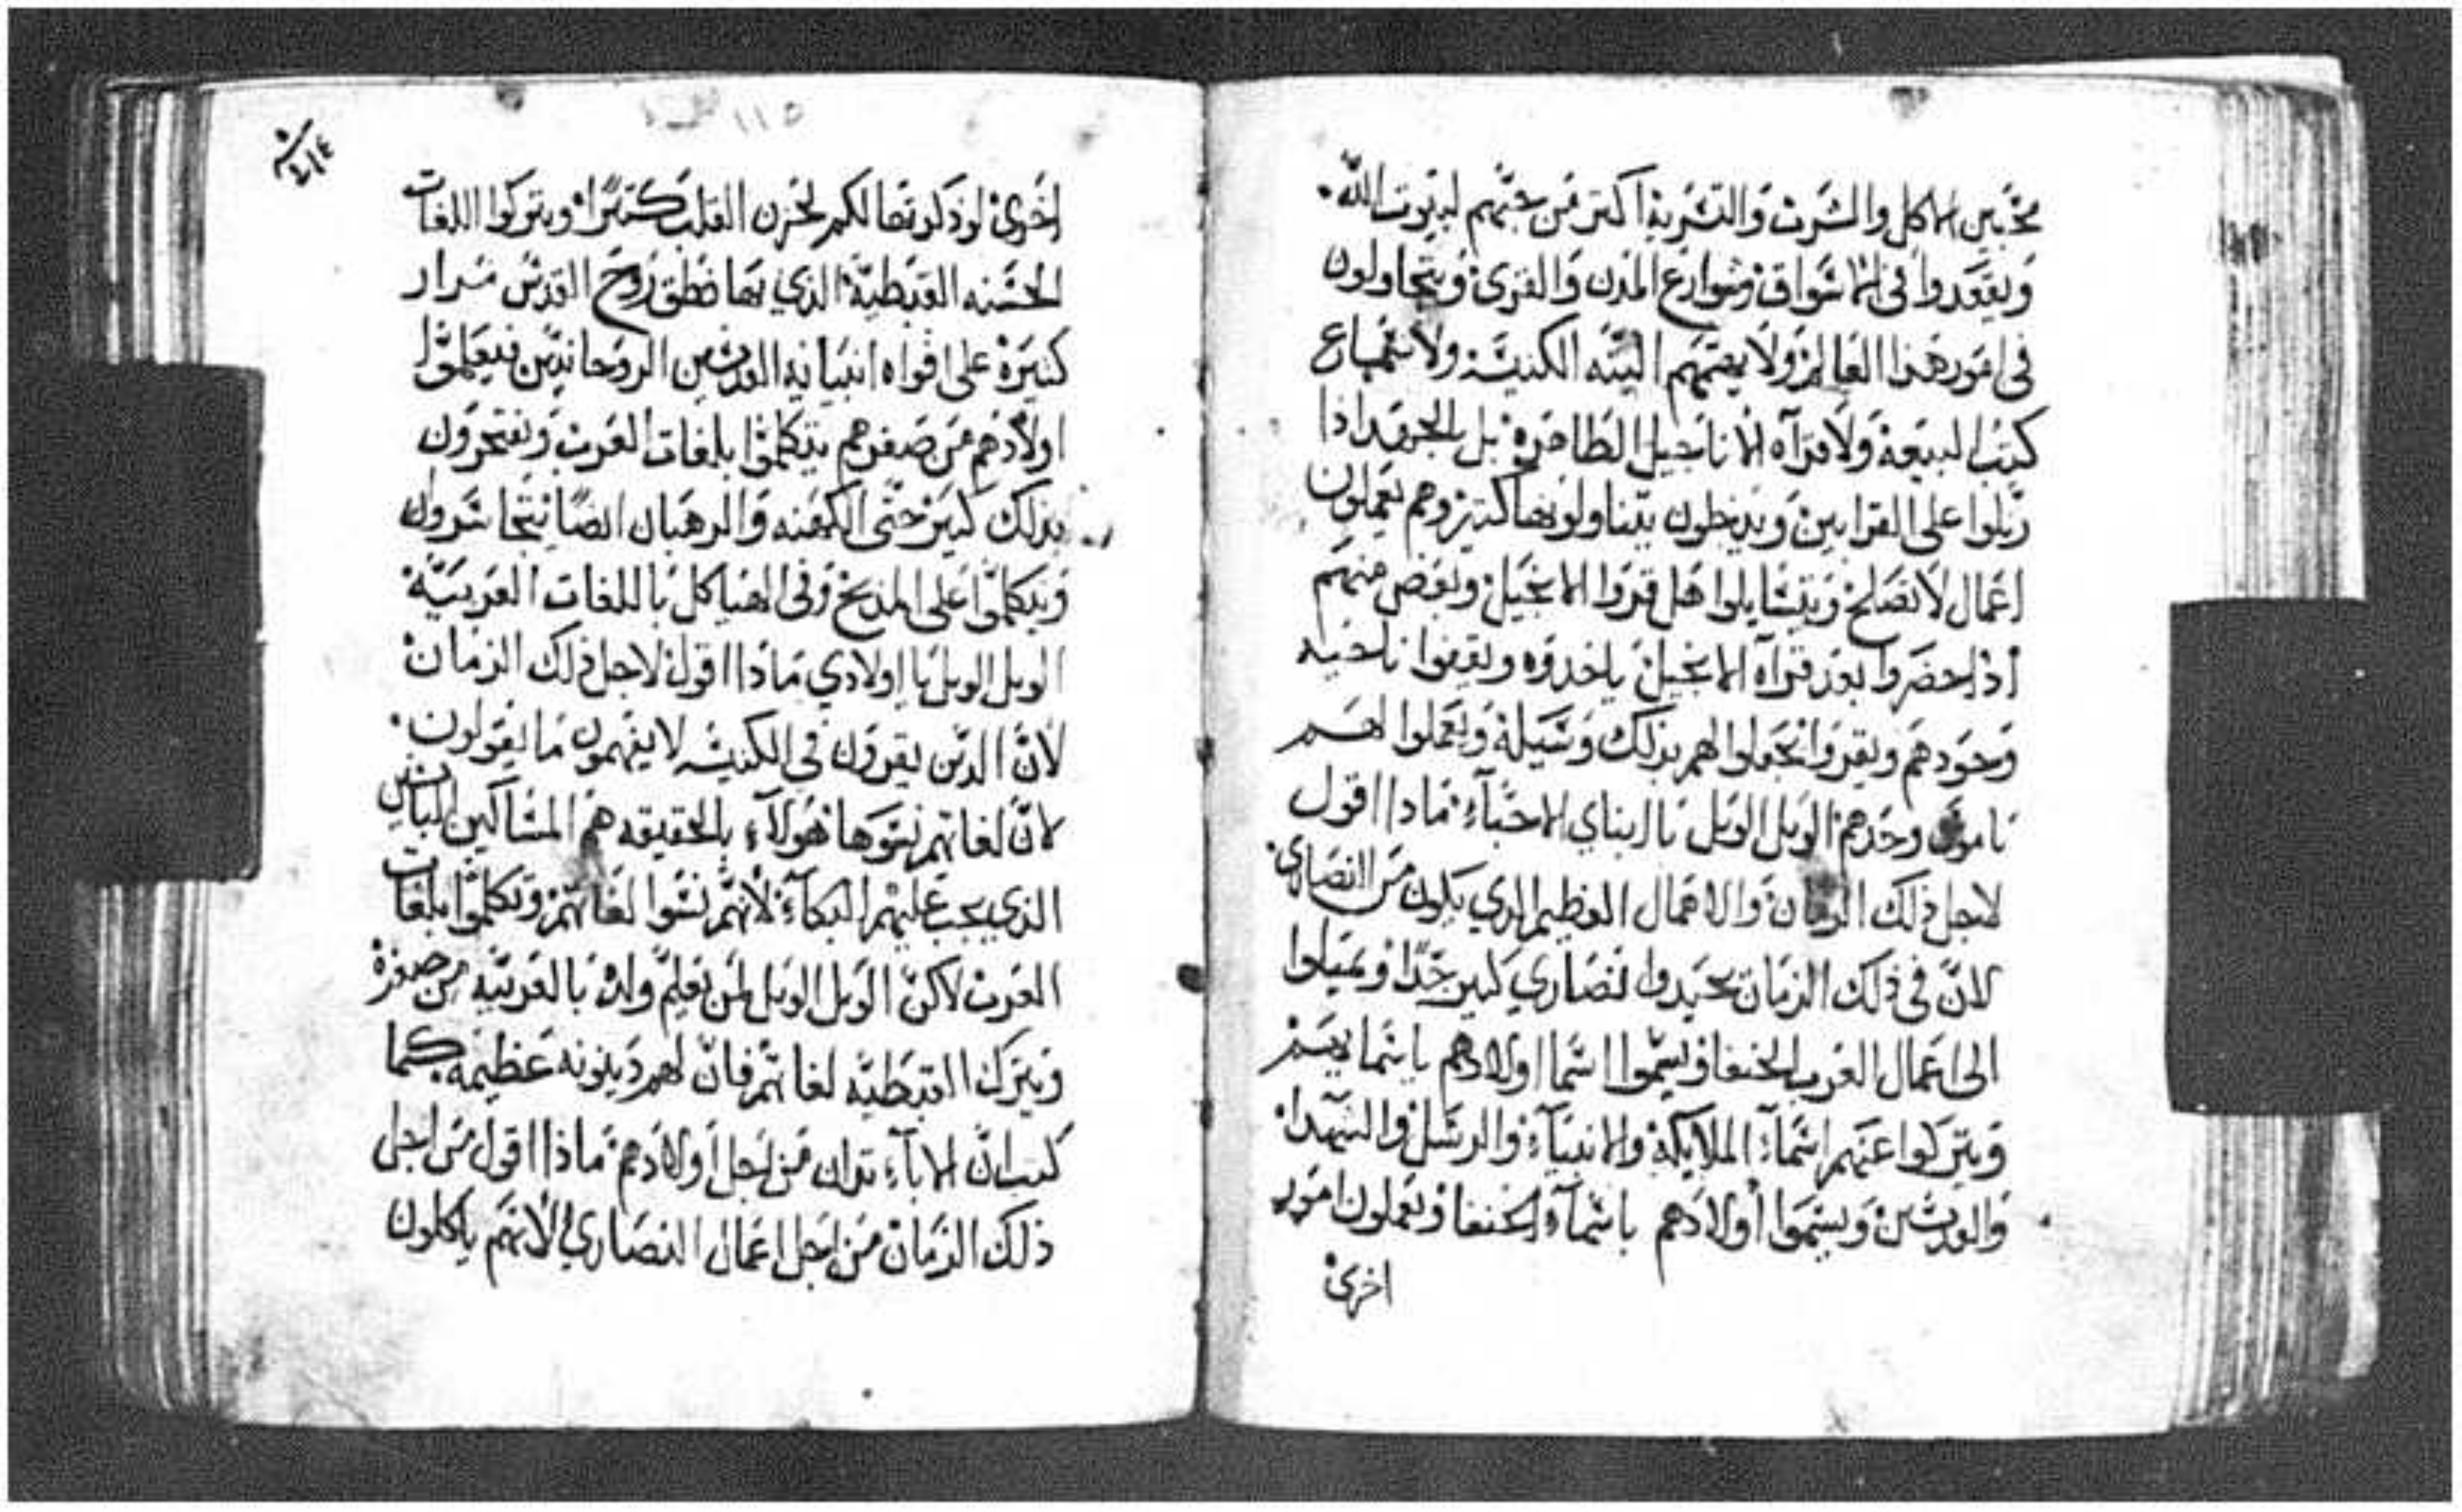 محبين الاكل والشرب والتشربه اكتر من حبهم لبيوت الله
ويقعدوا في الاسواق وشوارع المدن والقرى ويتجاولون
في امور هذا العالم ولا يهمهم البته الكنيسه ولا سماع
كتب البيعة ولا قرآة الاناجيل الطاهرة بل
على القرابين ويدخلون يتناولونها كتير وهم يعملون
اعمال لا تصلح ويتسايلوا هل قروا الانجيل وبعض منهم
اذا حضروا بعد قرآة الانجيل ياخدوه ويقفوا ناحيه
وحودهم ويقروا يجعلوا لهم بذلك وسيلة ويعملوا لهم
ناموس وحدهم الويل الويل يا ابناي الاحبآء مادا اقول
لاجل ذلك الزمان والاعمال العظيم الدي يكون من النصارى
لان في ذلك الزمان نصاري كتير جدًا ويميلوا
الى اعمال العرب الحنفا ويسموا اسما اولادهم باسمايهم
ويتركوا عنهم اسمآء الملايكة والانبيآء والرسل والشهدا
والقديسين ويسموا أولادهم باسمآء الحنفا ويعملون امور
اخرى
١١٥
اخرى لو ذكرتها لكم لحزن القلب كتيرًا ويتركوا اللغات
الحسنه القبطية الذي بها نطق روح القدس مرار
كتيرة على افواه انبيايه القديسين الروحانيين فيعلموا
اولادهم من صغرهم يتكلموا بلغات العرب ويفتخرون
بذلك كتير حتى الكهنه والرهبان ايضًا يتجاسرون
ويتكلموا على المذبح وفي الهياكل باللغات العربيّة
الويل الويل يا اولادي ماذا اقول لاجل ذلك الزمان
لأن الذين يقرون في الكنيسه لا يفهمون ما يقولون
لان لغاتهم نسوها هولآء بالحقيقه هم المساكين
الذي يجب عليهم البكآء لأنهم نسوا لغاتهم وتكلموا بلغات
العرب لاكن الويل الويل لمن يعلم ولده بالعربيّه من صغره
ويترك القبطيه لغاتهم فان لهم دينونه عظيمه كما
كتب ان الابآء تدان من اجل أولادهم ماذا اقول من اجل
ذلك الزمان من اجل اعمال النصاري لانهم ياكلون